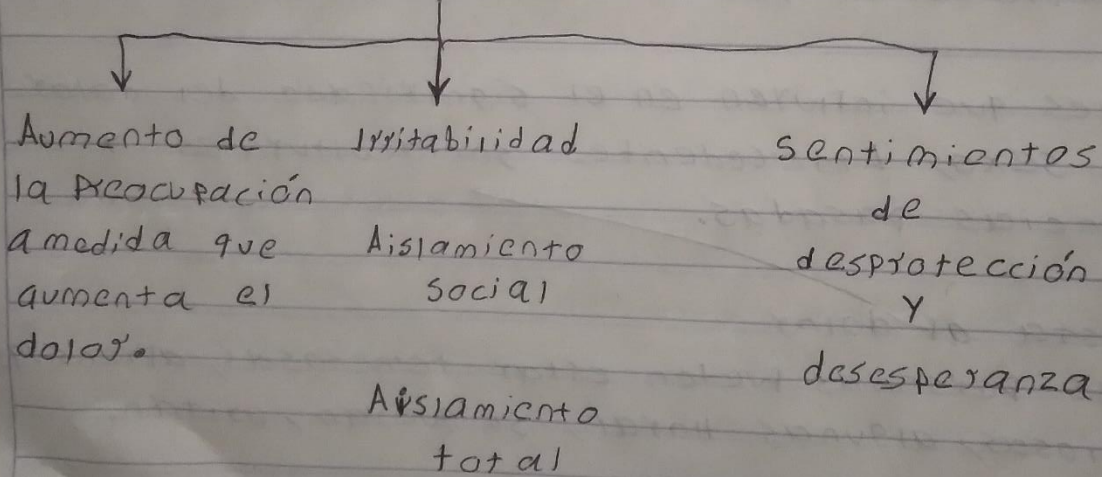 Aumento de
la Preocupación
amedida que
aumenta el
dolor.
Irritabilidad
Aislamiento
Social
Aislamiento
total
Sentimientos
de
desprotección
Y
desesperanza